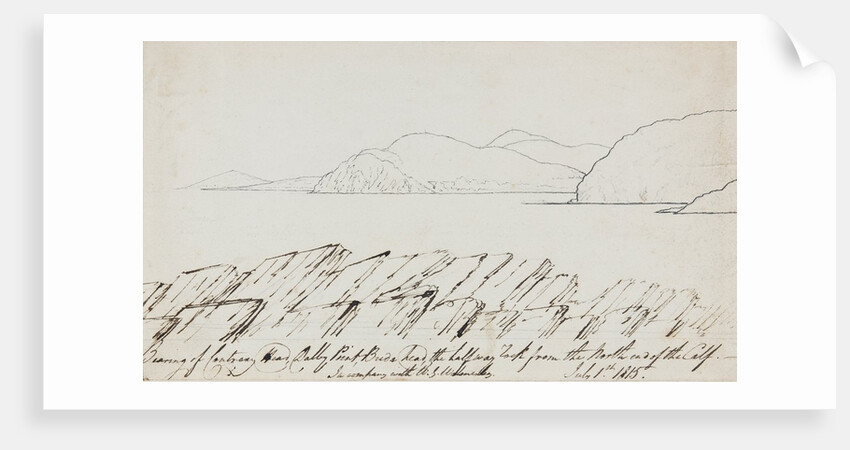 Bearing of Contrary Head, Dalby Point, Breda Head, the half way Rock from the North end of the Calf. —
In company with W. G.
July 1st. 1815.